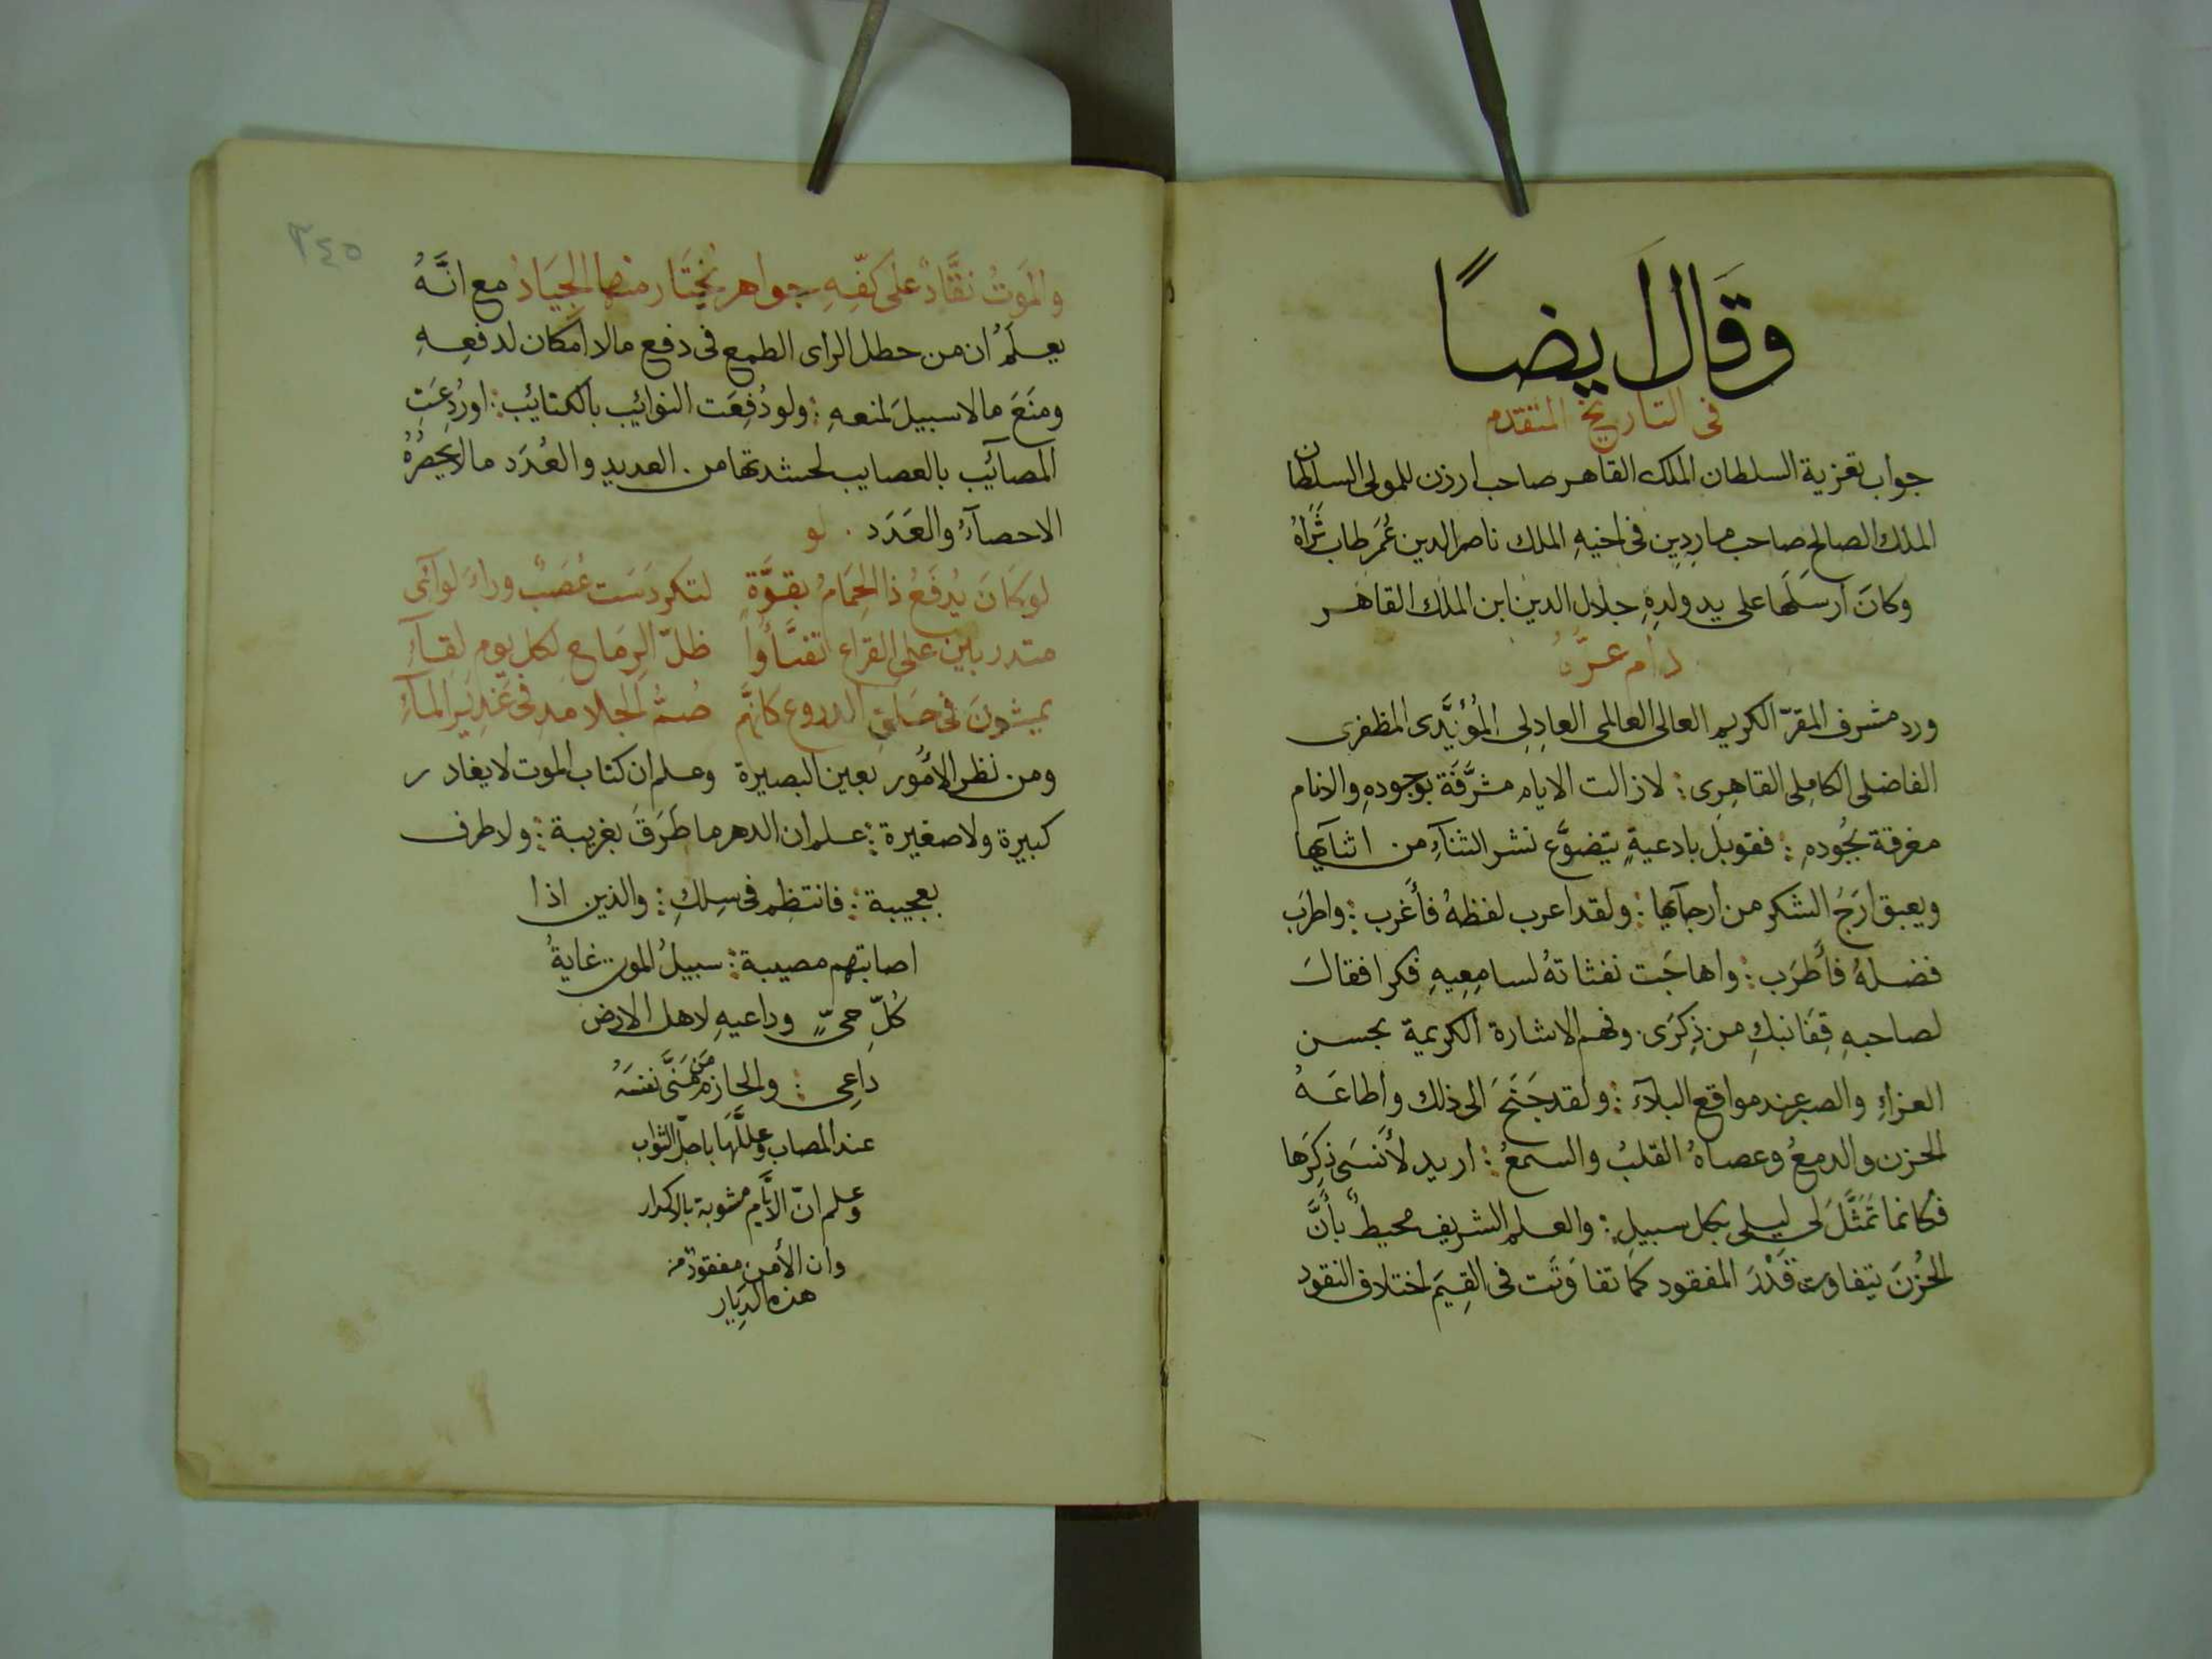 وقَال أيضاً
في التاريخ المتقدم
جواب تعزية السلطان الملك القاهر صاحب ارزن للمولى السلطان
الملك الصالح صاحب ماردين في اخيهِ الملك ناصر الدين عُمَر طاب ثَرَاهُ
وكانَ ارسَلَها على يد ولدِهِ جلال الدين ابن الملك القاهر
دام عزُّهُ
ورد مشرف المقرّ الكريم العالى العالمى العادِلِى المُؤيَّدى المظفرى
الفاضلى الكامِلى القاهِرِى : لا زالت الايام مشَّرفَة بوجودهِ والانام
مغرقة بجُودهِ : فقوبل بادعيةٍ يتضوَّع نشر الثنآءِ من اثنآيها
ويعبق ارَجُ الشكر من ارجآيها : ولقد اعرب لفظهُ فأَغرب : واطرَب
فضلهُ فأَطرَب : واهاجَت نفثاتهُ لسامِعِيهِ فكرا فقالَ
لصاحبهِ قِفَا نبكِ من ذِكرَى وفهم الاشارة الكريمية بحسن
العزاءِ والصبر عند مواقع البلآء : ولقد جَنَحَ الى ذلك واطاعَهُ
الحزن والدمعُ وعصاهُ القلبُ والسمعُ : اريد لأَنسَى ذِكرَها
فكانما تَمَثَّلَ لى ليلى بكل سبيلِ : والعلم الشريف محيطٌ بأَنَّ
الحُزنَ يتفاوت قَدْرَ المفقود كما تفاوَتَت في القِيَم اختلاف النقود
٣٤٥
والمَوتُ نقَّادٌ على كفّهِ جواهر يختَار منها الجِيَادُ مع انَّهُ
يعلَمُ ان من خطل الراى الطمع في دفع ما لا امكان لدفعِهِ
ومنَعَ ما لا سبيلَ لمنعهِ : ولو دُفِعَت النوائب بالكتائب : او رُدِعَتِ
المصآئب بالعصايب لحشد تها من العديد والعُدَد ما لا يحصرُهُ
الاحصآءُ والعَدَد . لو
لو كَانَ يُدفَعُ ذا الحِمَامُ بقوَّةٍ لتكردَسَت عُصَبٌ وراءَ لوآئى
متدربين على القراع اتفَيَّأُوا ظلّ الرِمَاح لكل يوم لقآءِ
يمشونَ في حَلَقِ الدروع كانَّهم صُمُّ الجلامد في غَدِيرِ المآءِ
ومن نظر الامُور بعين البصيرة وعلم ان كتاب الموت لا يغادر
كبيرة ولا صغيرة : علم ان الدهر ما طَرَقَ بغريبة : ولا طرف
بعجيبة : فانتظِم في سِلكِ : والذين اذا
اصابتهم مصيبة : سبيلُ الموت غايةُ
كُلّ حىٍّ وداعيهِ لاهل الارض
داعِى : والحازم مَن هَنَّى نفسَهُ
عند المصاب وعلَّلَها باجلّ الثواب
وعلم انّ الايَّام مشوبة بالاكدار
وان الأَمن مفقود من
هذه الدِيَار